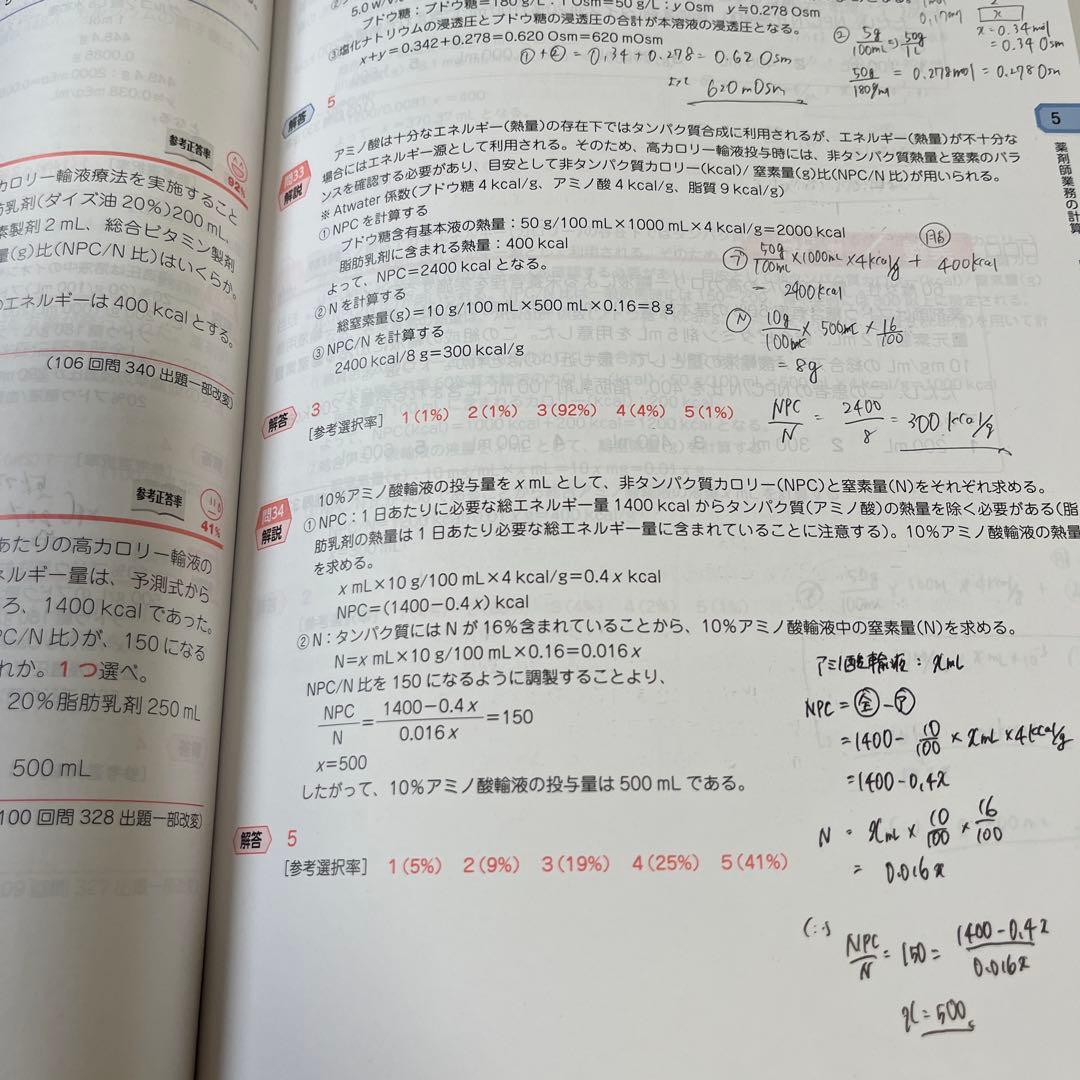 5.0 w/v%
ブドウ糖:ブドウ糖=180 g/L:1 Osm=50 g/L:y Osm y≒0.278 Osm
③塩化ナトリウムの浸透圧とブドウ糖の浸透圧の合計が本溶液の浸透圧となる。
x+y=0.342+0.278=0.620 Osm=620 mOsm
①+②=0.34+0.278=0.62 Osm
620mOsm
② 5g/100mL⇒50g/L
50g/180g/m=0.278mol=0.278Osm
x=0.34mol
=0.34Osm
解答 5
問33
解説
アミノ酸は十分なエネルギー(熱量)の存在下ではタンパク質合成に利用されるが、エネルギー(熱量)が不十分な
場合にはエネルギー源として利用される。そのため、高カロリー輸液投与時には、非タンパク質熱量と窒素のバラ
ンスを確認する必要があり、目安として非タンパク質カロリー(kcal)/窒素量(g)比(NPC/N 比)が用いられる。
※ Atwater 係数(ブドウ糖 4 kcal/g、アミノ酸 4 kcal/g、脂質 9 kcal/g)
①NPC を計算する
ブドウ糖含有基本液の熱量:50 g/100 mL×1000 mL×4 kcal/g=2000 kcal
脂肪乳剤に含まれる熱量:400 kcal
よって、NPC=2400 kcal となる。
②N を計算する
総窒素量(g)=10 g/100 mL×500 mL×0.16=8 g
③ NPC/N を計算する
2400 kcal/8 g=300 kcal/g
㋐ 50g/100mL×1000mL×4kcal/g + 400kcal
= 2400kcal
Ⓝ 10g/100mL × 500mL × 16/100
= 8g
NPC/N = 2400/8 = 300 kcal/g
解答 3
[参考選択率] 1(1%) 2(1%) 3(92%) 4(4%) 5(1%)
問34
解説
10%アミノ酸輸液の投与量を x mL として、非タンパク質カロリー(NPC)と窒素量(N)をそれぞれ求める。
①NPC:1 日あたりに必要な総エネルギー量 1400 kcal からタンパク質(アミノ酸)の熱量を除く必要がある(脂
肪乳剤の熱量は 1 日あたり必要な総エネルギー量に含まれていることに注意する)。10%アミノ酸輸液の熱量
を求める。
x mL×10 g/100 mL×4 kcal/g=0.4 x kcal
NPC=(1400−0.4 x) kcal
②N:タンパク質には N が 16%含まれていることから、10%アミノ酸輸液中の窒素量(N)を求める。
N=x mL×10 g/100 mL×0.16=0.016 x
NPC/N 比を 150 になるように調製することより、
NPC/N=1400−0.4 x/0.016 x=150
x=500
したがって、10%アミノ酸輸液の投与量は 500 mL である。
解答 5
[参考選択率] 1(5%) 2(9%) 3(19%) 4(25%) 5(41%)
アミノ酸輸液:xmL
NPC=㊎−㋐
=1400−10/100×xmL×4kcal/g
=1400−0.4x
N = xmL × 10/100 × 16/100
= 0.016x
NPC/N=150=1400−0.4x/0.016x
x=500
5
薬剤師業務の計算
参考正答率
92%
カロリー輸液療法を実施すること
肪乳剤(ダイズ油 20%)200 mL、
素製剤 2 mL、総合ビタミン製剤
量(g)比(NPC/N 比)はいくらか。
エネルギーは 400 kcal とする。
(106 回問 340 出題一部改変)
参考正答率
41%
あたりの高カロリー輸液の
ネルギー量は、予測式から
ろ、1400 kcal であった。
PC/N 比)が、150 になる
れか。1 つ選べ。
20%脂肪乳剤 250 mL
500 mL
100 回問 328 出題一部改変)